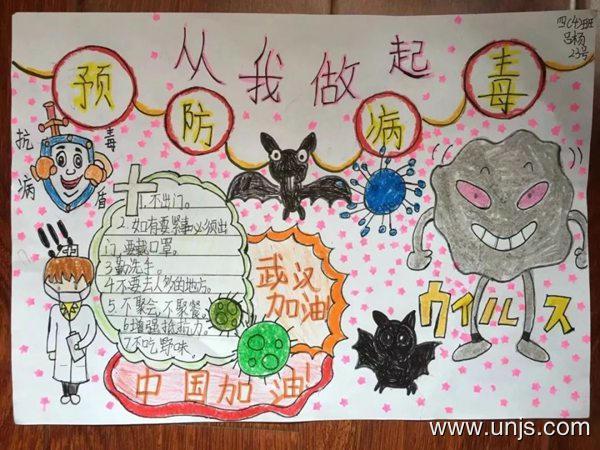 四(4)班
吕杨
23号
从我做起
预防病毒
抗病毒盾
1.不出门。
2.如有要紧事必须出
门,要戴口罩。
3勤洗手。
4不要去人多的地方。
5.不聚会,不聚餐。
6增强抵抗力.
7.不吃野味。
武汉
加油!
中国加油!
ウイルス
!!!
www.unjs.com